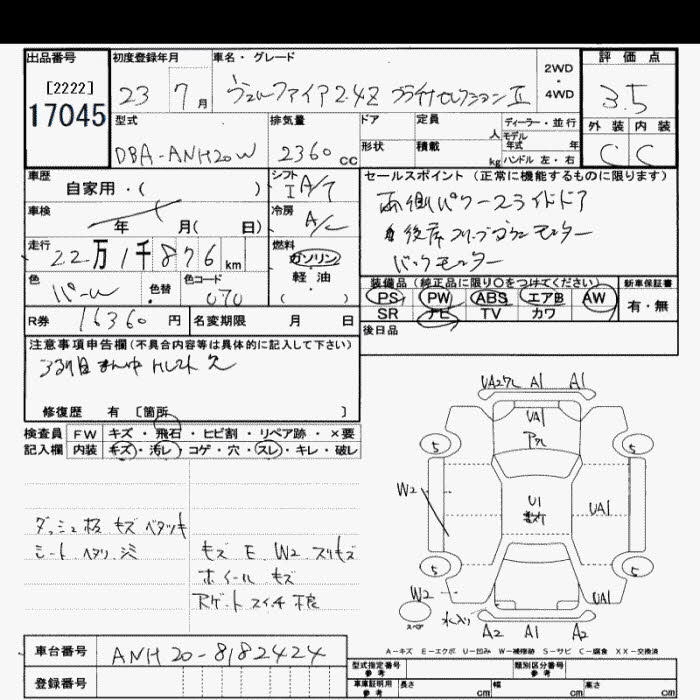 出品番号 初度登録年月 車名・グレード 2WD・4WD 評価点
[2222]
17045
23 7月 ヴェルファイア 2.4Z プラチナセレクションⅡ 3.5
型式 排気量 ドア 定員 人 ディーラー・並行 外装 内装
モデル年式 年
DBA-ANH20W 2360cc 形状 積載 kg ハンドル 左・右 C C
車歴 シフト セールスポイント (正常に機能するものに限ります)
自家用・( ) I A/T 両側パワースライドドア
車検 年 月( 日) 冷房 A/C
後席フリップダウンモニター
走行 22万1千876km 燃料 ガソリン・軽油・( ) バックモニター
色 パール 色替 色コード 070
装備品 (純正品に限り○をつけてください) 新車保証書
PS PW ABS エアB AW 有・無
SR ナビ TV カワ
R券 16360円 名変期限 月 日 後日品
注意事項申告欄(不具合内容等は具体的に記入して下さい)
3列目まん中 欠
修復歴 有 [箇所 ]
検査員記入欄 FW キズ・飛石・ヒビ割・リペア跡・×要
内装 キズ・汚レ・コゲ・穴・スレ・キレ・破レ
UA27L A1 A1
UA1
5 5
W2 U1 UA1
ダッシュ板 キズ ベタツキ
シート ヘタリ シミ
キズ E W2 スリキズ
ホイール キズ
スイッチ 不良
5 5
W2 UA1
スペア 水入り A2 A1 A2
A−キズ E−エクボ U−凹み W−補修跡 S−サビ C−腐食 XX−交換済
車台番号 ANH20-8182424
登録番号
型式指定番号 参考 類別区分番号 参考
車庫証明用 参考 長さ cm 幅 cm 高さ cm